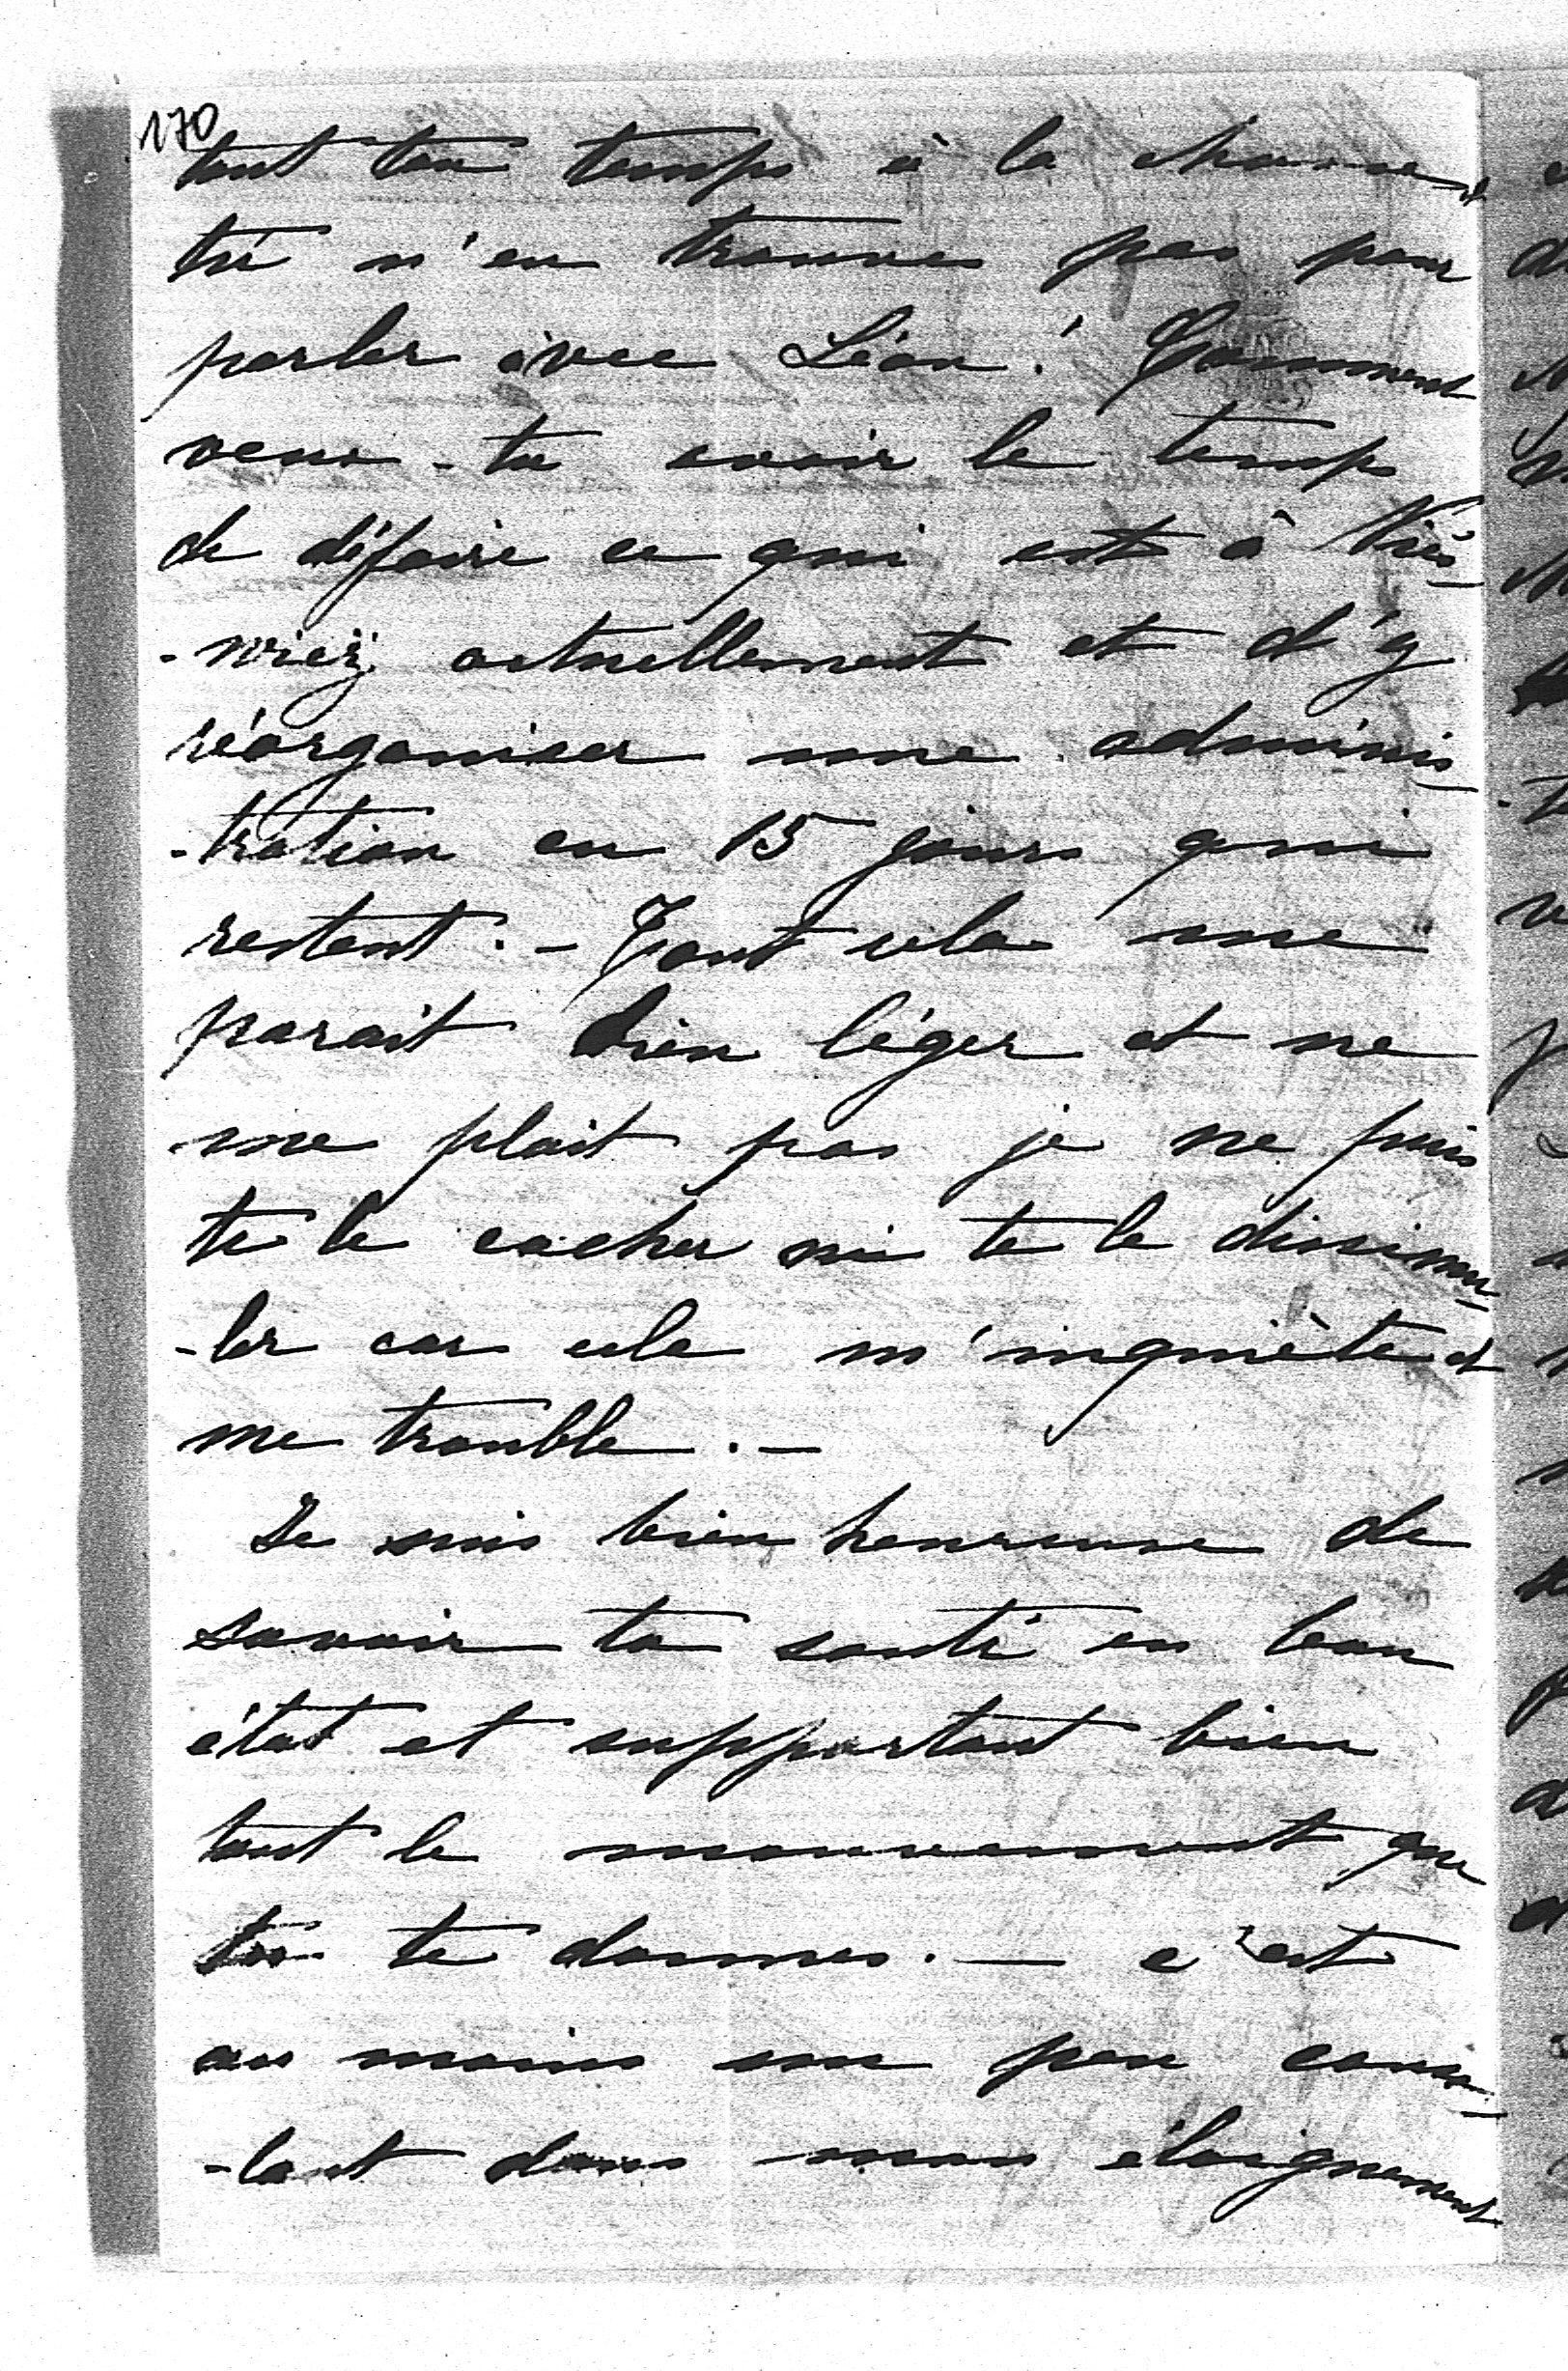 170
tout ton temps à la chasse et
tu n'en trouves pas pour
parler avec Léon ! Comment
veux-tu avoir le temps
de défaire ce qui est à Niés_
-wiez actuellement et d'y
réorganiser une adminis_
-tration en 15 jours qui
restent. - Tout cela me
parait bien léger et ne
me plait pas je ne puis
te le cacher ni te le dissimu_
-ler car cela m'inquiète et
me trouble. -
Je suis bien heureuse de
savoir ta santé en bon
état et supportant bien
tout le mouvement que
tu te donnes. — c'est
au moins un peu conso_
-lant dans mon éloignement